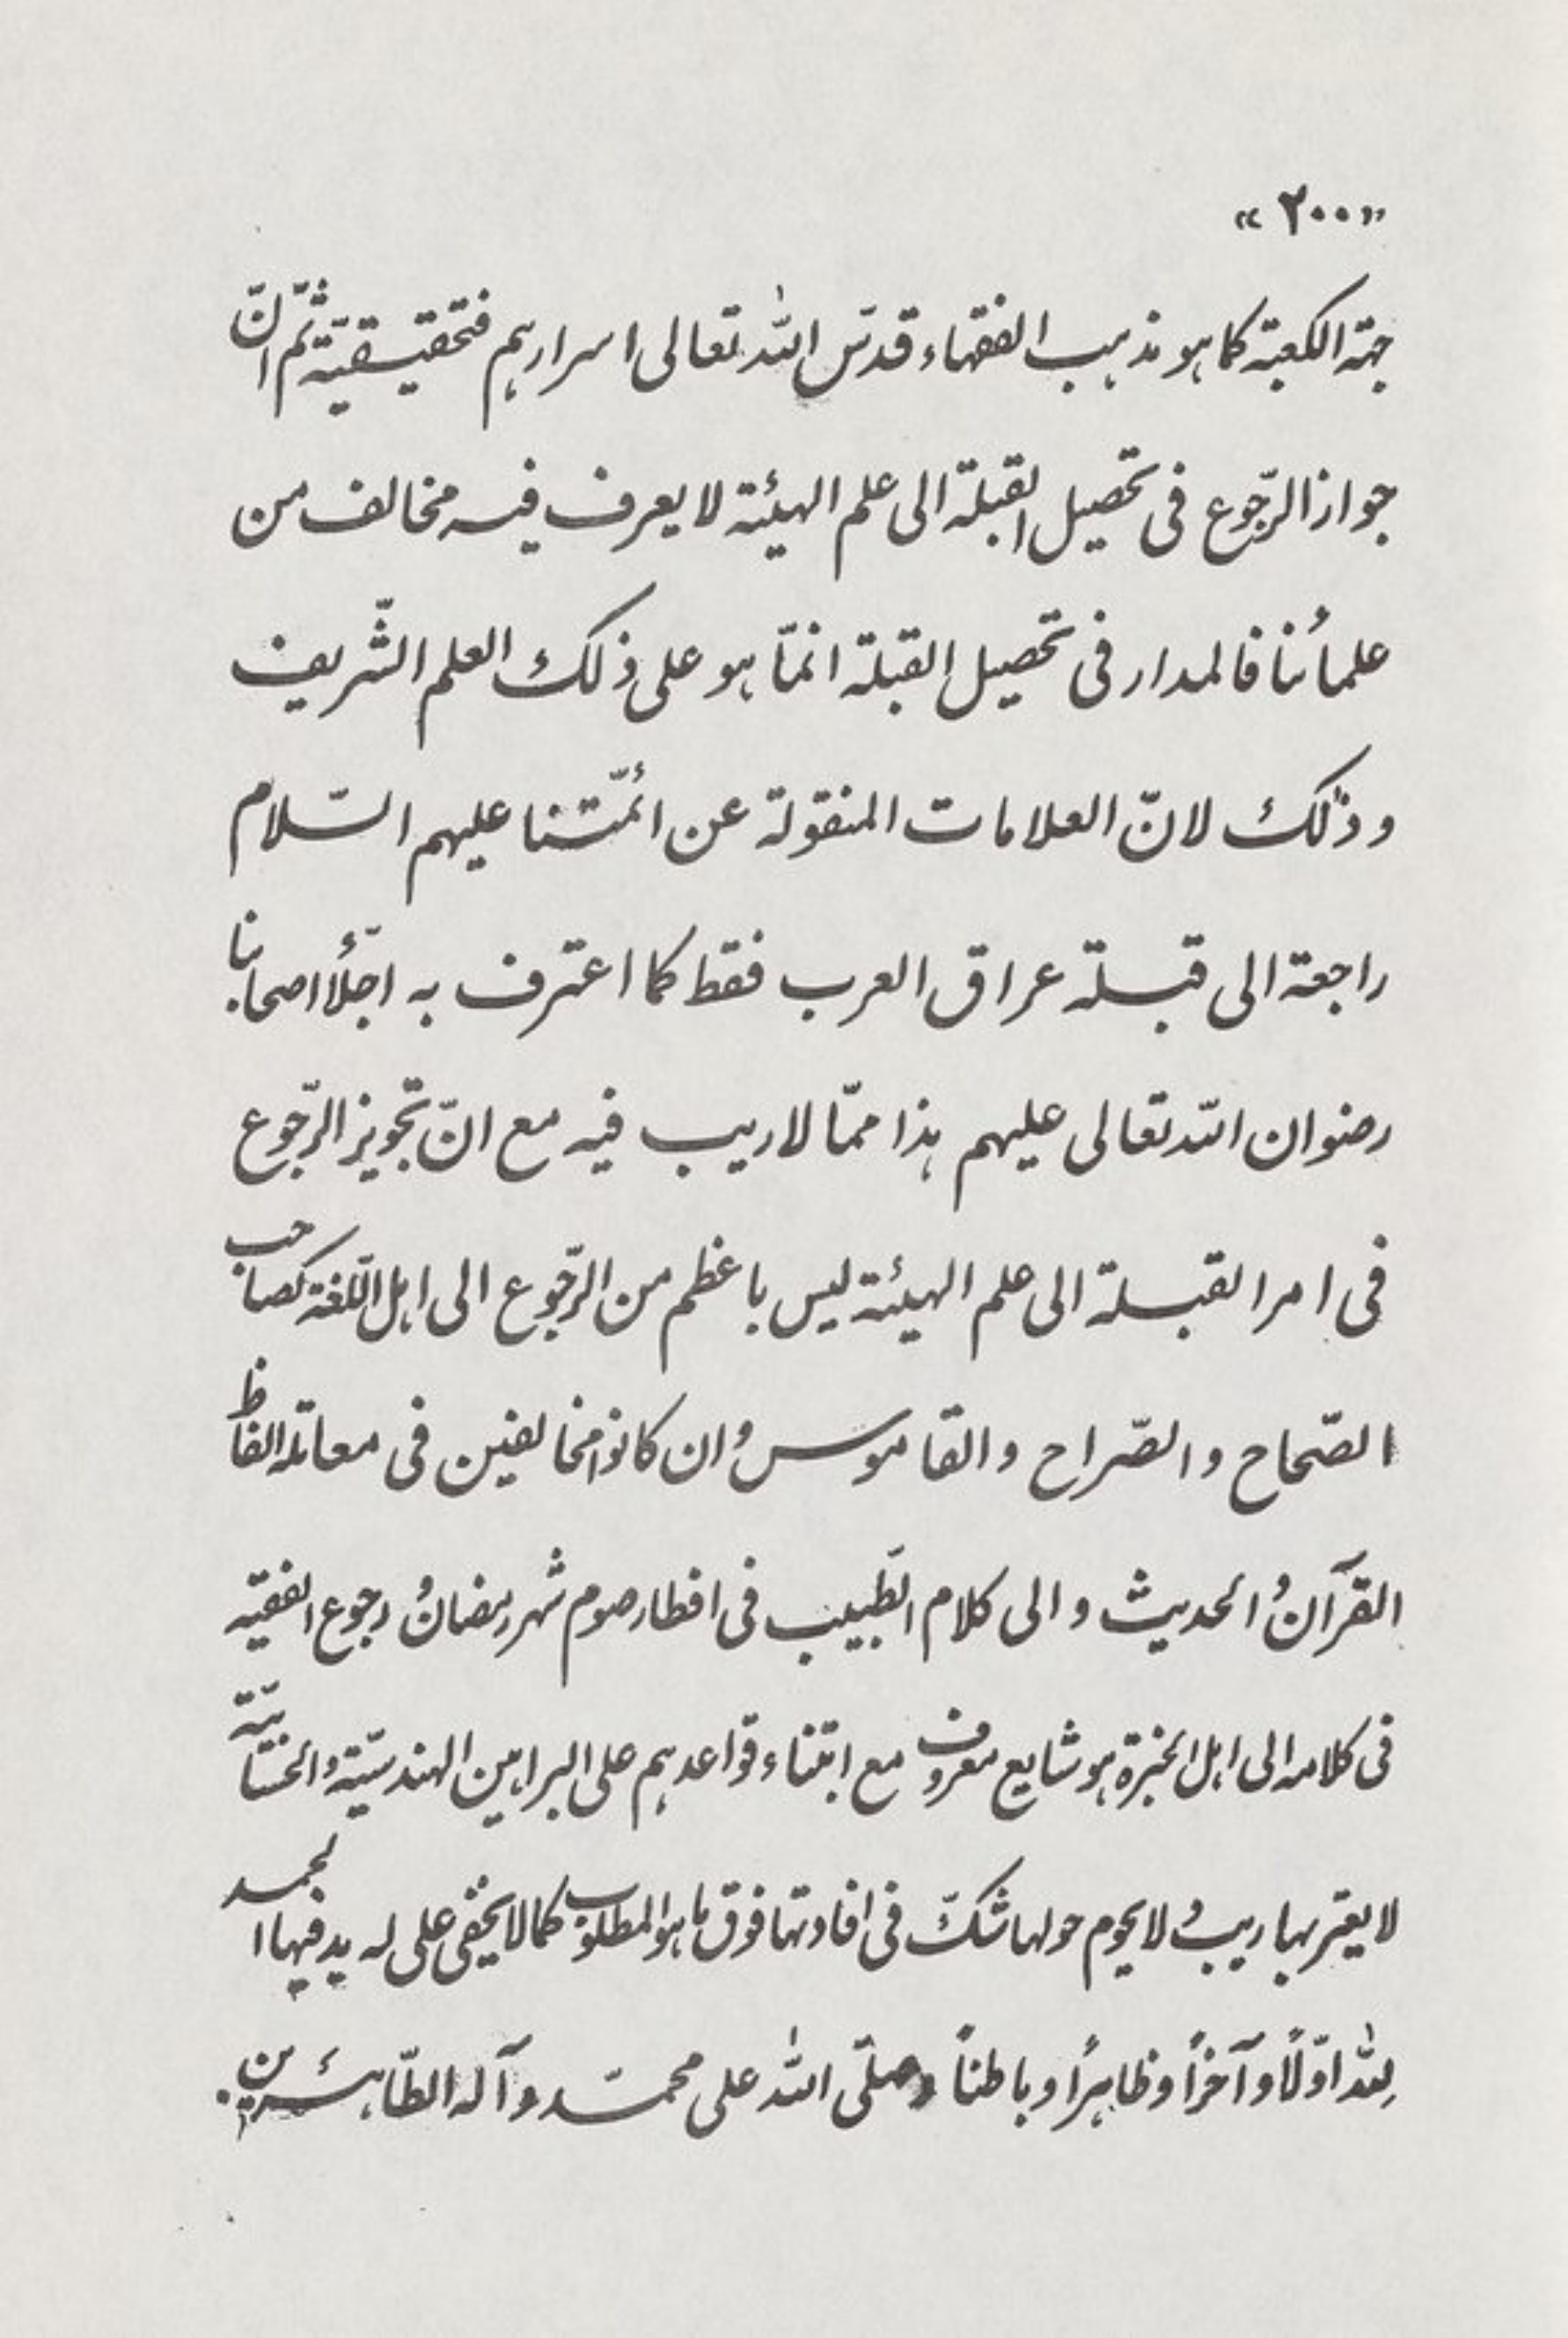 «۲۰۰»
جهة الكعبة كما هو مذهب الفقهاء قدّس الله تعالى اسرارهم فتحقيقيّة ثمّ انّ
جواز الرّجوع فى تحصيل القبلة الى علم الهيئة لا يعرف فيه مخالف من
علمائنا فالمدار فى تحصيل القبلة انمّا هو على ذلك العلم الشّريف
و ذلك لانّ العلامات المنقولة عن ائمّتنا عليهم السّلام
راجعة الى قبلة عراق العرب فقط كما اعترف به اجّلأ اصحابنا
رضوان الله تعالى عليهم هذا ممّا لا ريب فيه مع انّ تجويز الرّجوع
فى امر القبلة الى علم الهيئة ليس باعظم من الرّجوع الى اهل اللّغة كصاحب
الصّحاح و الصّراح و القاموس و ان كانوا مخالفين فى معاملة الفاظ
القرآن و الحديث و الى كلام الطّبيب فى افطار صوم شهر رمضان و رجوع الفقيه
فى كلامه الى اهل الخبرة هو شايع معروف مع ابتناء قواعدهم على البراهين الهندسّية و الحسّابيّة
لا يعتر بها ريب و لا يحوم حولها شكّ فى افادتها فوق ما هو المطلوب كما لا يخفى على له يد فيها الحمد
لله اوّلًا و آخراً و ظاهرًا و باطناً و صلّى الله على محمّد و آله الطّاهرين.